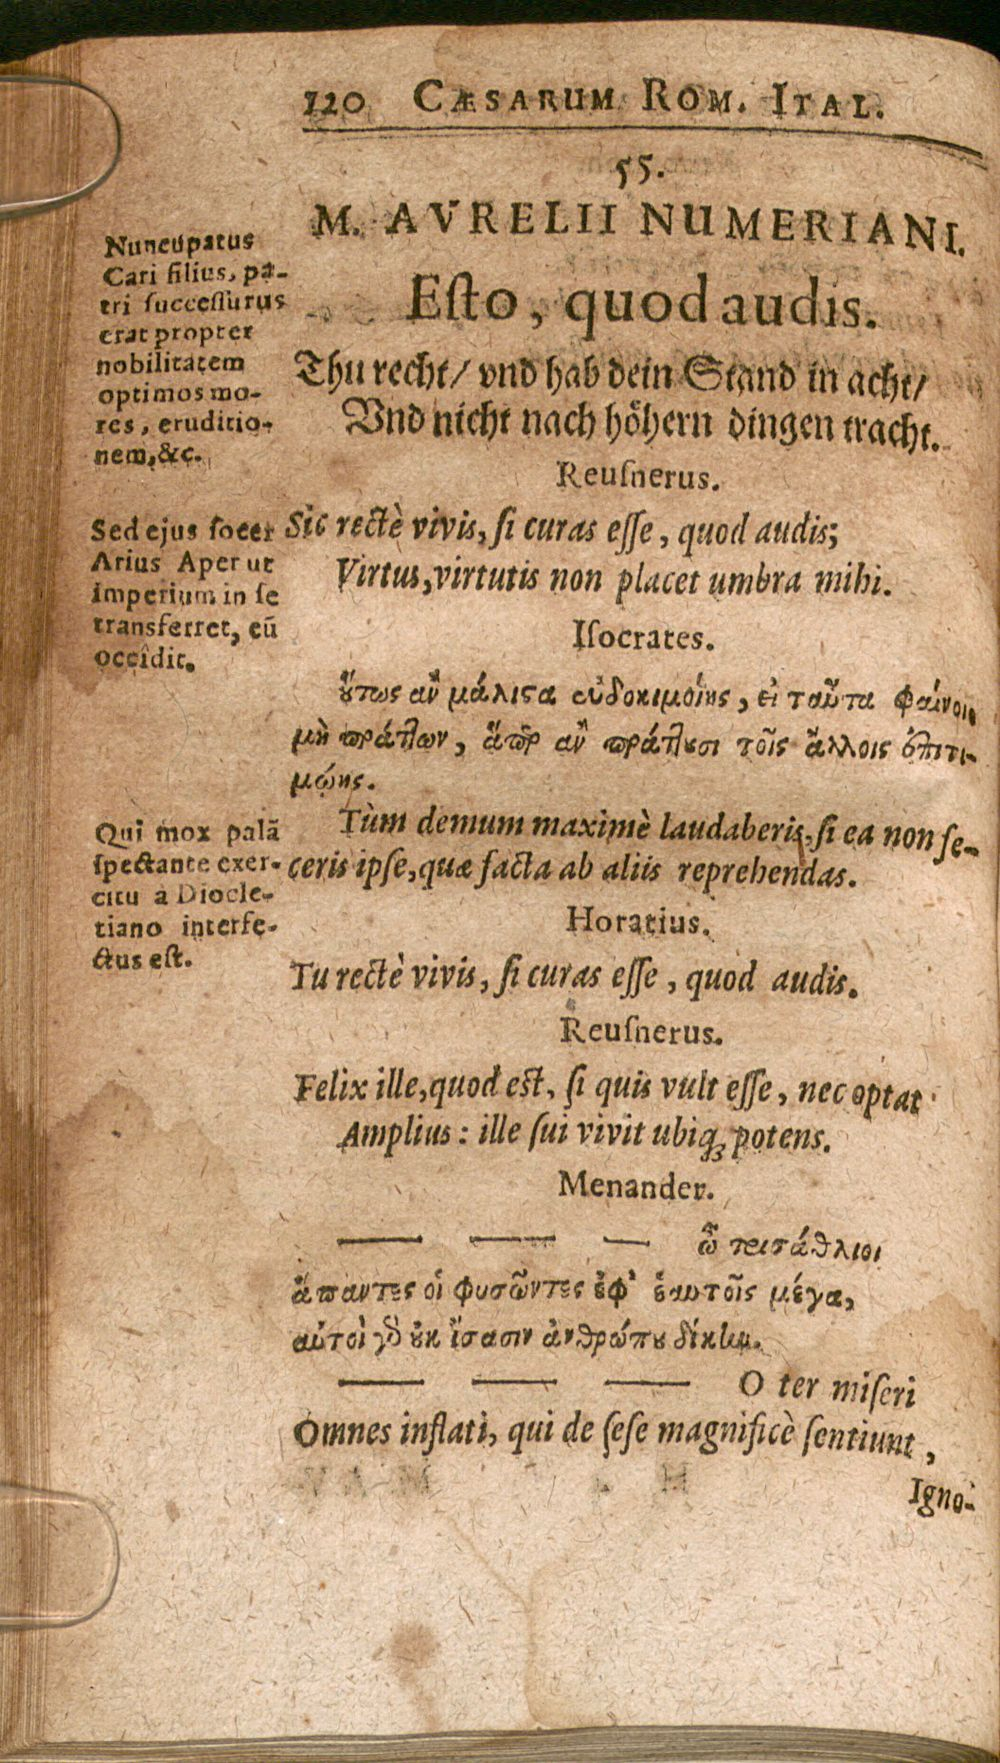 120 CÆSARUM ROM. ITAL.
55.
M. AVRELII NUMERIANI.
Eſto, quod audis.
Thu recht/ vnd hab dein Stand in acht/
Vnd nicht nach höhern dingen tracht.
Reuſnerus.
Sic rectè vivis, ſi curas eſſe, quod audis;
Virtus, virtutis non placet umbra mihi.
Iſocrates.
ὕτως ἂν μάλιϛα εὐδοκιμοίης, εἰ ταῦτα φαίνοιο
μὴ πράτ̂των, ἅπερ ἂν πράτ̂τȣσι τοῖς ἄλλοις ἐπιτι-
μῴης.
Tùm demum maximè laudaberis, ſi ea non fe-
ceris ipſe, quæ facta ab aliis reprehendas.
Horatius.
Tu rectè vivis, ſi curas eſſe, quod audis.
Reuſnerus.
Felix ille, quod eſt, ſi quis vult eſſe, nec optat
Amplius: ille ſui vivit ubiq; potens.
Menander.
— — — ὦ τρισάθλιοι
ἅπαντες οἱ φυσῶντες ἐφ' ἑαυτοῖς μέγα,
αὐτοὶ γὸ ȣκ ἴσασιν ἀνθρώπȣ δίκην.
— — — O ter miſeri
Omnes inflati, qui de ſeſe magnificè ſentiunt,
Igno-
Nuncupatus
Cari filius, pa-
tri ſucceſſurus
erat propter
nobilitatem
optimos mo-
res, eruditio-
nem, &c.
Sed ejus ſocer
Arius Aper ut
imperium in ſe
transferret, eũ
occîdit.
Qui mox palã
ſpectante exer-
citu a Diocle-
tiano interfe-
ctus eſt.